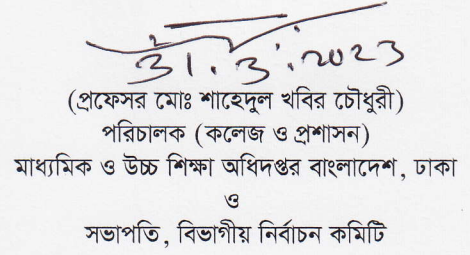 31.3.2023
(প্রফেসর মোঃ শাহেদুল খবির চৌধুরী)
পরিচালক (কলেজ ও প্রশাসন)
মাধ্যমিক ও উচ্চ শিক্ষা অধিদপ্তর বাংলাদেশ, ঢাকা
ও
সভাপতি, বিভাগীয় নির্বাচন কমিটি